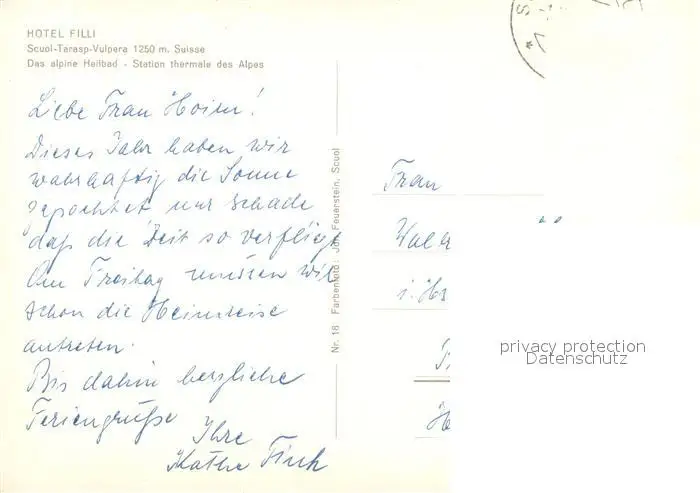 HOTEL FILLI
Scuol-Tarasp-Vulpera 1250 m. Suisse
Das alpine Heilbad - Station thermale des Alpes
Liebe Frau Hoim!
Dieses Jahr haben wir
wahrhaftig die Sonne
gepachtet, nur schade
daß die Zeit so verfliegt
Am Freitag müssen wir
schon die Heimreise
antreten.
Bis dahin herzliche
Feriengrüße
Ihre
Käthe Fink
Nr. 18 Farbenfoto: Feuerstein, Scuol
Frau
privacy protection
Datenschutz